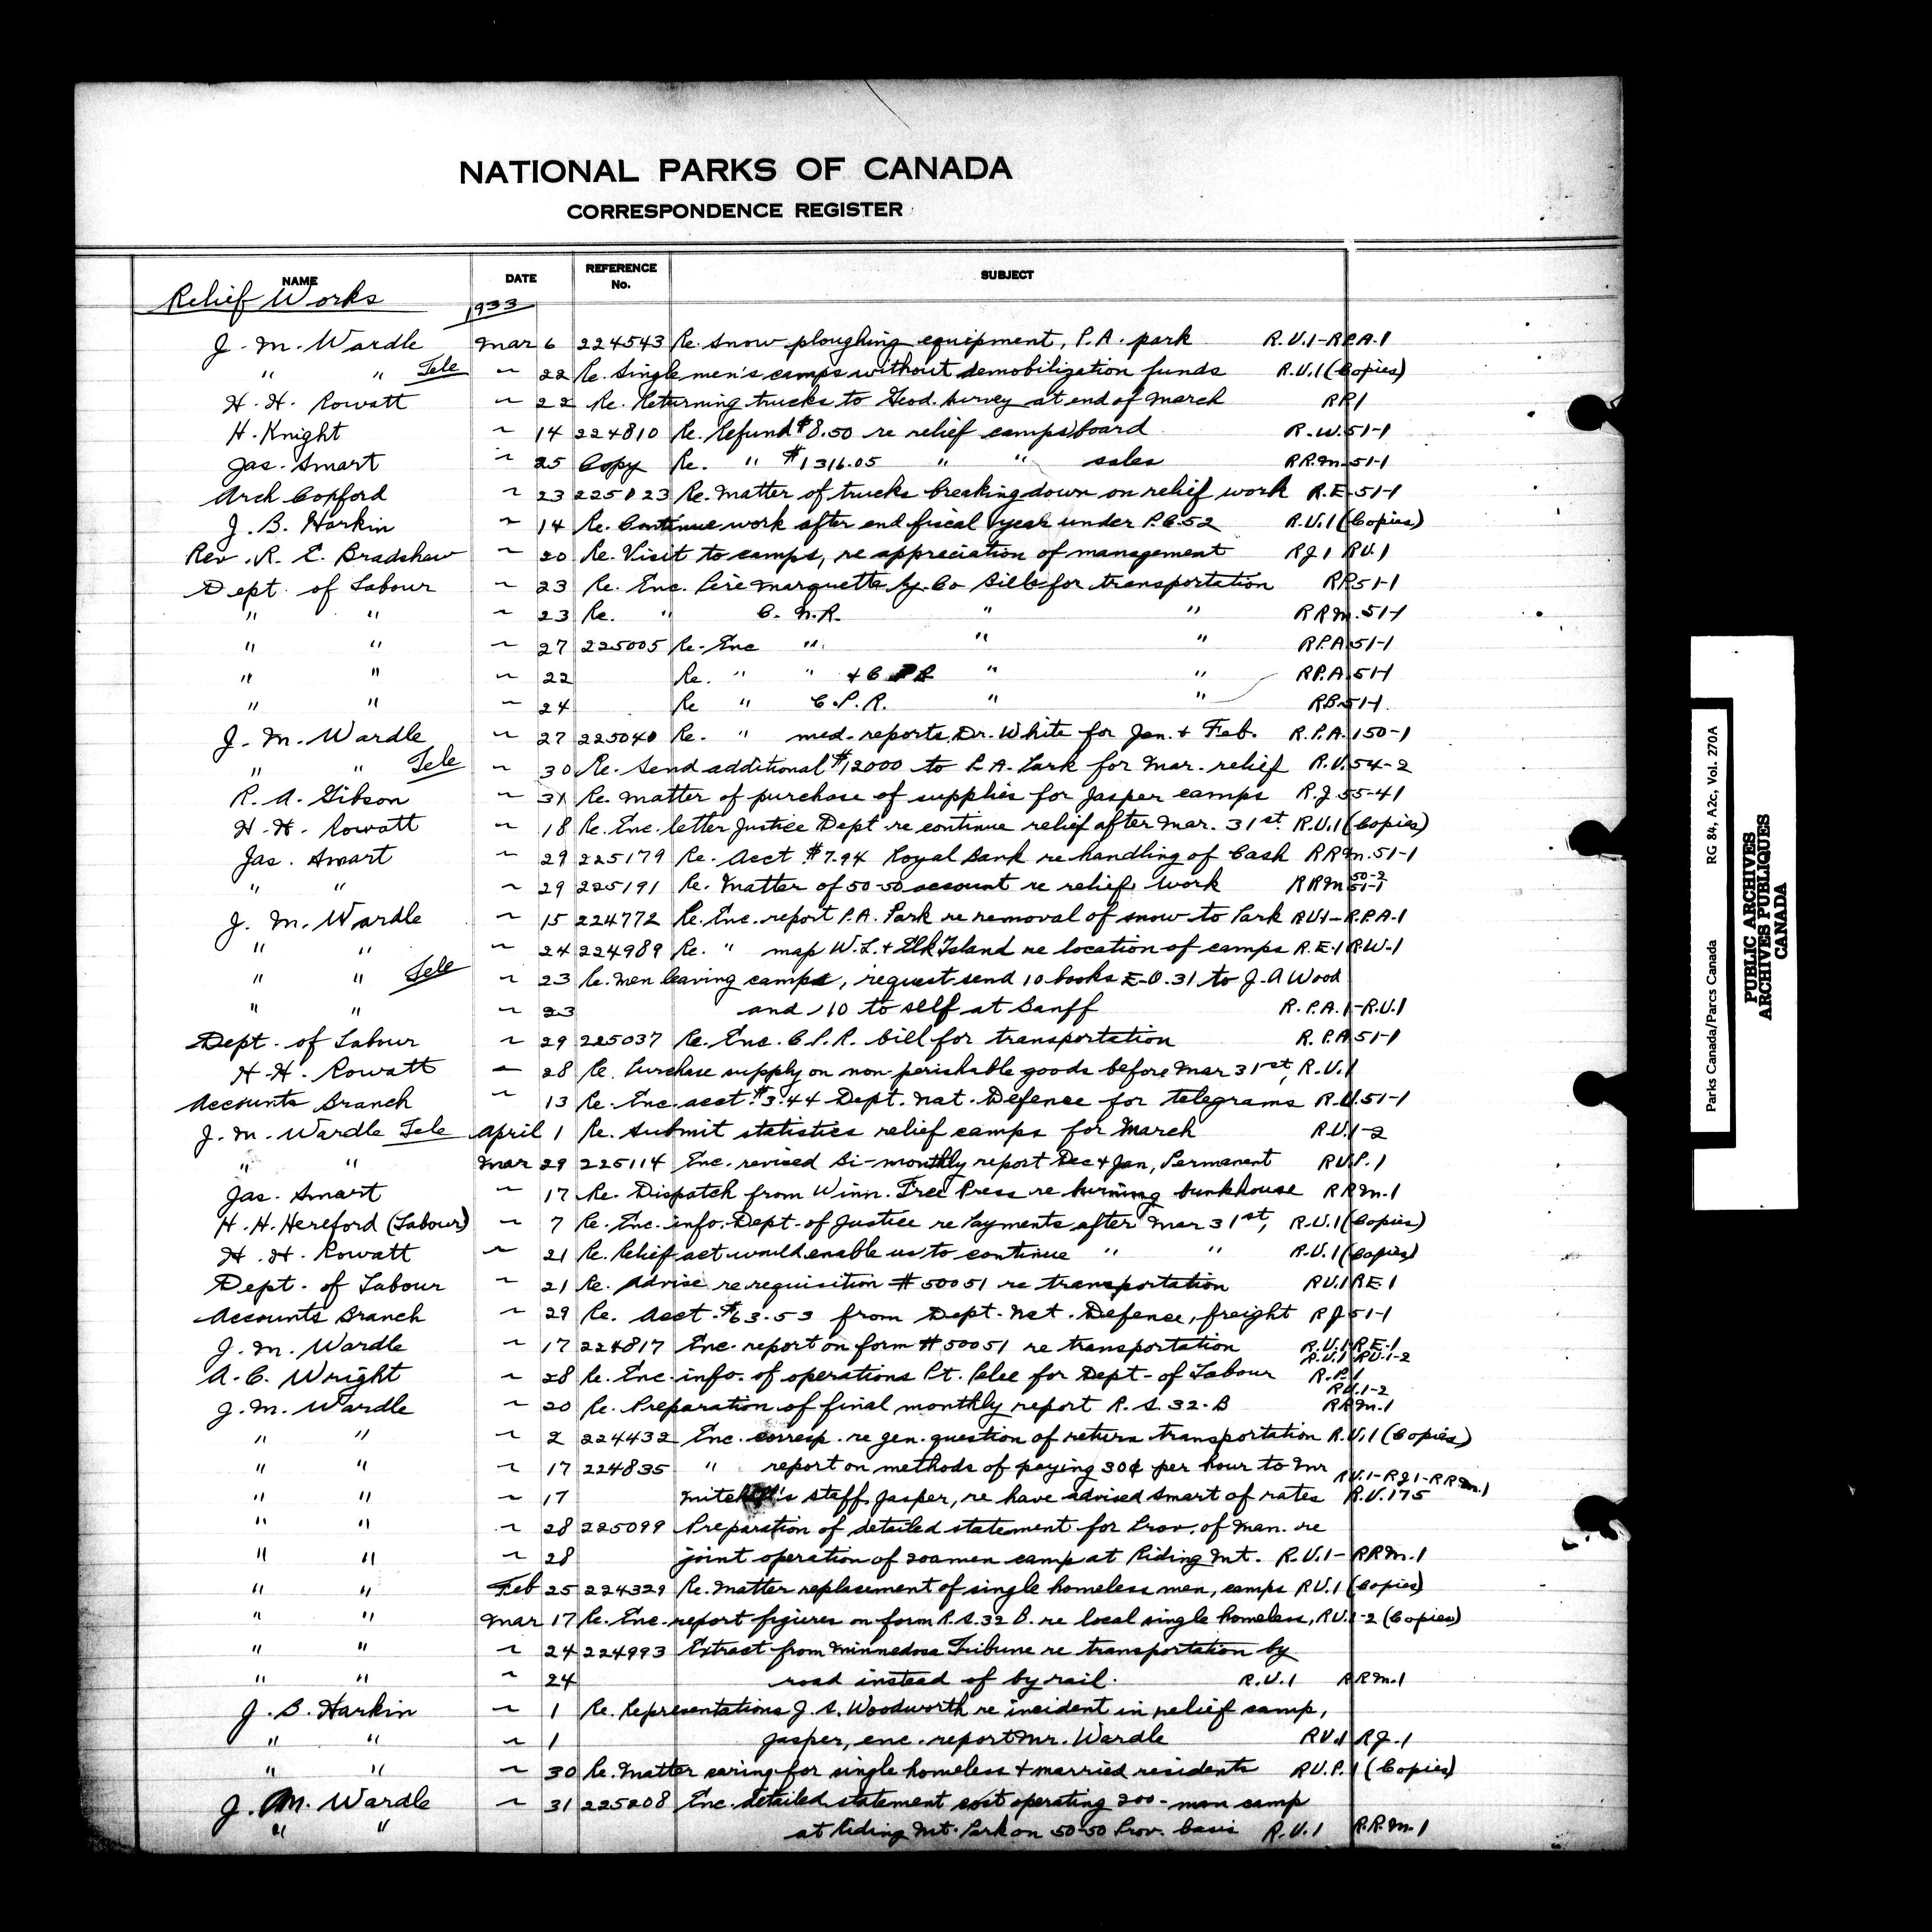 NATIONAL PARKS OF CANADA
CORRESPONDENCE REGISTER
NAME DATE REFERENCE No. SUBJECT
Relief Works 1933
J. M. Wardle Mar 6 224543 Re. snow ploughing equipment, P.A. park R.U.1-R.P.A.1
" " Tele ~ 22 Re. Single men's camps without demobilization funds R.U.1 (Copies)
H. H. Rowatt ~ 22 Re. Returning trucks to Geod. Survey at end of March RP.1
H. Knight ~ 14 224810 Re. Refund $8.50 re relief camps board R.W.51-1
Jas. Smart ~ 25 Copy Re. " $1316.05 " " sales RR.M.51-1
Arch Copford ~ 23 225123 Re. Matter of trucks breaking down on relief work R.E.51-1
J. B. Harkin ~ 14 Re. Continue work after end fiscal year under P.C.52 R.U.1 (Copies)
Rev. R. E. Bradshaw ~ 20 Re. Visit to camps, re appreciation of management RJ1 RU.1
Dept. of Labour ~ 23 Re. Enc. Pere Marquette Ry. Co bills for transportation RP.51-1
" " ~ 23 Re. " C.N.R. " " RRM.51-1
" " ~ 27 225005 Re. Enc " " " RP.A.51-1
" " ~ 22 Re. " " + C P R " " RP.A.51-1
" " ~ 24 Re " C.P.R. " " R.B.51-1.
J. M. Wardle ~ 27 225040 Re. " med. reports, Dr. White for Jan. + Feb. R.P.A.150-1
" " Tele ~ 30 Re. Send additional $12000 to P.A. Park for Mar. relief R.U.54-2
R. A. Gibson ~ 31 Re. Matter of purchase of supplies for Jasper camps R.J 55-41
H. H. Rowatt ~ 18 Re. Enc. letter Justice Dept re continue relief after Mar. 31st. R.U.1 (Copies)
Jas. Smart ~ 29 225179 Re. Acct $7.94 Royal Bank re handling of Cash RRM.51-1
" " ~ 29 225191 Re. Matter of 50-50 account re relief work RRM 50-2 51-1
J. M. Wardle ~ 15 224772 Re. Enc. report P.A. Park re removal of snow to Park RU1-R.P.A.1
" " ~ 24 224989 Re. " map W.L. + Elk Island re location of camps R.E.1 R.W.1
" " Tele ~ 23 Re. Men leaving camps, request send 10 books E.O.31 to J.A Wood
" " ~ 23 and 10 to self at Banff R.P.A.1-R.U.1
Dept. of Labour ~ 29 225037 Re. Enc. C.P.R. bill for transportation R.P.A 51-1
H. H. Rowatt ~ 28 Re. Purchase supply on non-perishable goods before Mar 31st, R.U.1
Accounts Branch ~ 13 Re. Enc. acct. $3.44 Dept. Nat. Defence for telegrams R.U.51-1
J. M. Wardle Tele April 1 Re. Submit statistics relief camps for March R.U.1-2
" " Mar 29 225114 Enc. revised bi-monthly report Dec + Jan, Permanent RU.P.1
Jas. Smart ~ 17 Re. Dispatch from Winn. Free Press re burning bunkhouse RRM.1
H. H. Hereford (Labour) ~ 7 Re. Enc. info. Dept. of Justice re Payments after Mar 31st, R.U.1 (Copies)
H. H. Rowatt ~ 21 Re. Relief act would enable us to continue " " R.U.1 (Copies)
Dept. of Labour ~ 21 Re. Advise re requisition # 50051 re transportation RU.1 RE.1
Accounts Branch ~ 29 Re. Acct. $63.53 from Dept. Nat. Defence, freight RJ 51-1
J. M. Wardle ~ 17 224817 Enc. report on form # 50051 re transportation R.U.1 R.E.1
R.U.1 RU.1-2
A. C. Wright ~ 28 Re. Enc. info. of operations Pt. Pelee for Dept. of Labour R.P.1
RU.1-2
J. M. Wardle ~ 20 Re. Preparation of final monthly report R.S. 32-B RRM.1
" " ~ 2 224432 Enc. corresp. re gen. question of return transportation R.U.1 (Copies)
" " ~ 17 224835 " report on methods of paying 30¢ per hour to Mr RU.1-RJ1-RRM.1
" " ~ 17 Mitchell's staff, Jasper, re have advised Smart of rates R.U.175
" " ~ 28 225099 Preparation of detailed statement for Prov. of Man. re
" " ~ 28 joint operation of 200 men camp at Riding Mt. R.U.1- RRM.1
" " Feb 25 224329 Re. Matter replacement of single homeless men, camps RU.1 (Copies)
" " Mar 17 Re. Enc. report figures on form R.S.32 B. re local single homeless, RU.1-2 (Copies)
" " ~ 24 224993 Extract from Minnedosa Tribune re transportation by
" " ~ 24 road instead of by rail. R.U.1 RRM.1
J. B. Harkin ~ 1 Re. Representations J. S. Woodworth re incident in relief camp,
" " ~ 1 Jasper, enc. report Mr. Wardle RU.1 RJ.1
" " ~ 30 Re. Matter caring for single homeless + married residents RU.P.1 (Copies)
J. M. Wardle ~ 31 225208 Enc. detailed statement cost operating 200-man camp
" " at Riding Mt. Park on 50-50 Prov. basis R.U.1 R.R.M.1
Parks Canada/Parcs Canada RG 84, A2c, Vol. 270A
PUBLIC ARCHIVES
ARCHIVES PUBLIQUES
CANADA